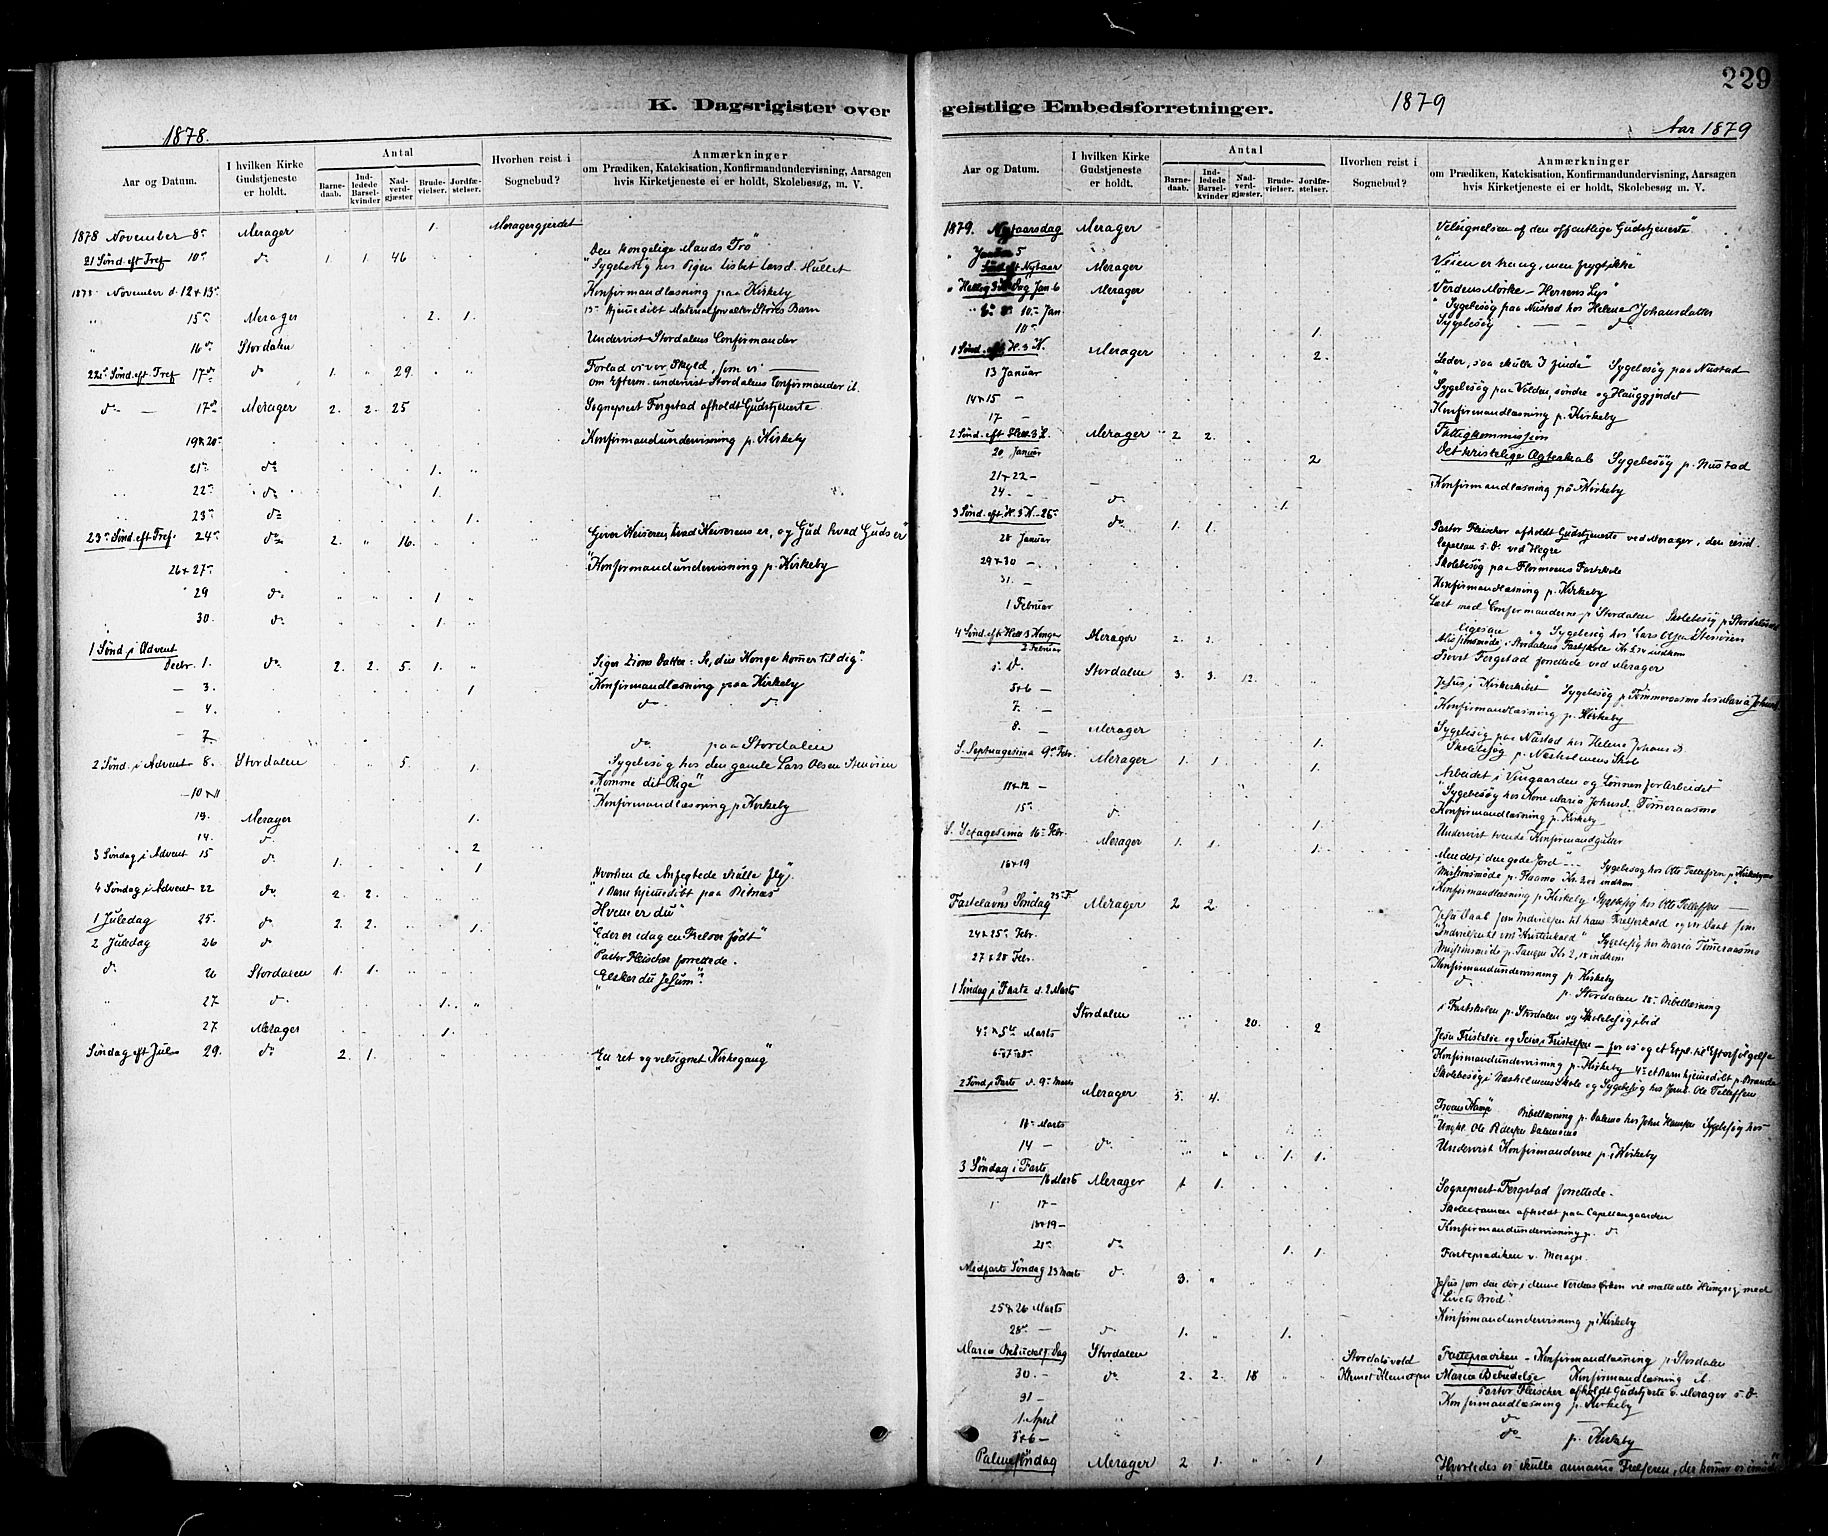 K. Dagsrigister over
1878.
Aar og Datum. I hvilken Kirke Gudstjeneste er holdt. Antal Barnedaab. Indledede Barselkvinder Nadverdgjæster Brudevielser. Jordfæstelser. Hvorhen reist i Sognebud? Anmærkninger om Prædiken, Katekisation, Konfirmandundervisning, Aarsagen hvis Kirketjeneste ei er holdt, Skolebesøg, m. V.
1878 November 8de Merager 1. Meragergjerdet
21 Sønd. eft Tref 10de do 1. 1. 46 "Den kongelige Mands Tro"
"Sygebesøg hos Pigen Lisbet Larsd. Hullet
1878 November d. 12 & 13de Konfirmandlæsning paa Kirkeby
" 15de Merager 2. 1. 15de hjemmedøbt Materialforvalter Støres Barn
" 16de Stordalen Undervist Stordalens Confirmander
22de Sønd. eft. Tref 17de do 1. " 29. Forlad os vor Skyld, som vi
om Efterm. undervist Stordalens Confirmander
do — 17de Merager 2. 2. 25 Sogneprest Fergstad afholdt Gudstjeneste
19 & 20de Konfirmandundervisning p. Kirkeby
21de do 1. "
22de do 1.
23de do 1.
23de Sønd. eft Tref. 24de do 2. " 16. Giver Keiseren, hvad Keiserens er, og Gud hvad Guds er"
26 & 27de "Konfirmandundervisning p. Kirkeby
29 do " " 1 "
30. do 1.
1 Sønd. i Advent
Decbr. 1. do 2. 2. 5. 1. " Siger Zions Datter: Se, din Konge kommer til dig".
— 3. 1 "Konfirmandlæsning paa Kirkeby
— 4. do do
— 7. do paa Stordalen
2 Sønd. i Advent 8. Stordalen " 5. 1. Sygebesøg hos den gamle Lars Olsen Stenmoen
— 10 & 11 "Komme dit Rige"
13. Merager 1. "Konfirmandlæsning p. Kirkeby
14. do 2
3 Søndag i Advent 15 do 1. 1 Hvorhen de Anfegtede skulle fly.
4 Søndag i Advent 22 do 2. 2. "1 Barn hjemmedøbt paa
1 Juledag 25. do 2. 2. 1. Hvem er du"
2 Juledag 26 do "Eder er idag en Frelser født"
do 26 Stordalen 1. 1. "Pastor Fleischer forrettede.
" 27 do 1. " Elsker du Jesum".
" 27 Merager 1.
Søndag eft Jul 29. do 2. 1. "En ret og velsignet Kirkegang"
geistlige Embedsforretninger.
1879
229
Aar 1879
Aar og Datum. I hvilken Kirke Gudstjeneste er holdt. Antal Barnedaab. Indledede Barselkvinder Nadverdgjæster. Brudevielser. Jordfæstelser. Hvorhen reist i Sognebud? Anmærkninger om Prædiken, Katekisation, Konfirmandundervisning, Aarsagen hvis Kirketjeneste ei er holdt, Skolebesøg m. V.
1879. Nytaarsdag Merager Velsignelsen af den offentlige Gudstjeneste"
" Januar 5
Sønd. eft Nytaar Merager "Veien er trang, men frygt ikke"
" Hellig 3 K. Dag Jan 6 Merager Verdens Mørke – Herrens Lys"
10 — Jan. "Sygebesøg paa Nustad hos Helene Johansdatter
10de 1. Sygebesøg — — do
1 Sønd. eft H. 3 K. Merager 2.
13 Januar Leder, saa skulle I finde" Sygebesøg paa Nustad
14 & 15 — Sygebesøg paa Volden, søndre og Hauggjerdet
17 — Konfirmandlæsning p. Kirkeby
2 Sønd. eft Hell. 3 K. Merager 2 2. Fattigkommission
20 Januar 2 Det kristelige Ægteskab Sygebesøg p. Nustad
21 & 22 — Konfirmandlæsning på Kirkeby
24. — do 1.
3 Sønd. eft. H. 3 K. 26de do 1. 1. Pastor Fleischer afholdt Gudstjeneste ved Merager, den resid.
28 Januar Capellan s. D. ved Hegre
29 & 30 — Skolebesøg paa Flormoens Fastskole
31. — Konfirmandlæsning p. Kirkeby
1 Februar Læst med Confirmanderne p. Stordalen Skolebesøg p. Stordalens
4 Sønd. eft Hell 3 Konger Merager 2. 2. Ligesaa og Sygebesøg hos Lars Olsen Stenmoen
2 Februar Missionsmøde i Stordalens Fastskole
s. D. Stordalen 3. 3. 12. Provst Fergstad forrettede ved Merager
5 & 6 — Jesus i Kirkeskibet" Sygebesøg p. Tømmeraasmo hos Maria Johnsd.
7. — "Konfirmandlæsning p. Kirkeby
8. — Merager 1. Sygebesøg paa Nustad hos Helene Johansd.
S. Septuagesima 9de Febr. Merager 1. 1. 1. Skolebesøg p. Næsholmens Skole
11 & 12 — Arbeidet i Viingaarden og Lønnen for Arbeidet"
15. do 1. "Sygebesøg hos Kone Maria Johnsd. Tømmeraasmo
S. Sexagesima 16de Febr. Merager 1. 1. 1. Konfirmandlæsning p. Kirkeby
18 & 19 Undervist tvende Konfirmandgutter
Fastelavns Søndag 23de F. Merager 2 2. Men det i den gode Jord" Sygebesøg hos Ole Tellefsen p. Kirkebymo
24 & 25de Febr. Konfirmandlæsning p. Kirkeby Sygebesøg hos Ole Tellefsen
27 & 28 Febr. Missionsmøde p. Tangen Kr. 2,18 indkom
1 Søndag i Faste d. 2 Marts Konfirmandundervisning p. Kirkeby
Stordalen 20. 2 do p. Stordalen Bibellæsning
4de & 5te Marts i Fastskolen p. Stordalen og Skolebesøg ibid
6 & 7 & 8de Jesu Fristelse og Seier i Fristelsen — for os og et Expl. til Efterfølgelse
2 Sønd. i Faste d. 9de Marts Merager 5. 4. Konfirmandundervisning p. Kirkeby 4de et Barn hjemmedøbt p. Brenden
Skolebesøg i Næsholmens Skole og Sygebesøg hos Ole Tellefsen
11de Marts Troens Kamp Bibellæsning p. Dalemo hos John Hansen Sygebesøg hos
14 — do 1. 1. Undervist Konfirmanderne p. Kirkeby
3 Søndag i Faste
16 Marts Merager 1 1. Sogneprest Fergstad forrettede.
17 — Skoleexamen afholdt paa Capellangaarden
18 & 19 — Konfirmandundervisning p. do
21de do 1. 1. Fasteprædiken v. Merager.
Midfaste Søndag 23 Marts do 3. " Jesus som den der i denne Verdens Ørken vil mætte alle Hungrige med
25 & 26 Marts "Livets Brød"
28de — do 1. " 1. Konfirmandundervisning p. Kirkeby
Maria Bebudels. Dag Stordalen Stordalsvold Fasteprædiken – Konfirmandlæsning p. Stordalen
30. — do 2. 2. 18 Maria Bebudelse Konfirmandlæsning
31 — Pastor Fleischer afholdt Gudstjeneste v. Merager s. D.
1 April Konfirmandlæsning p. Kirkeby
5 & 6 — do p. Kirkeby
Palmesøndag Merager 2 1. " 1 "Hvorledes vi skulle annamme Frelseren, der kommer os imøde"